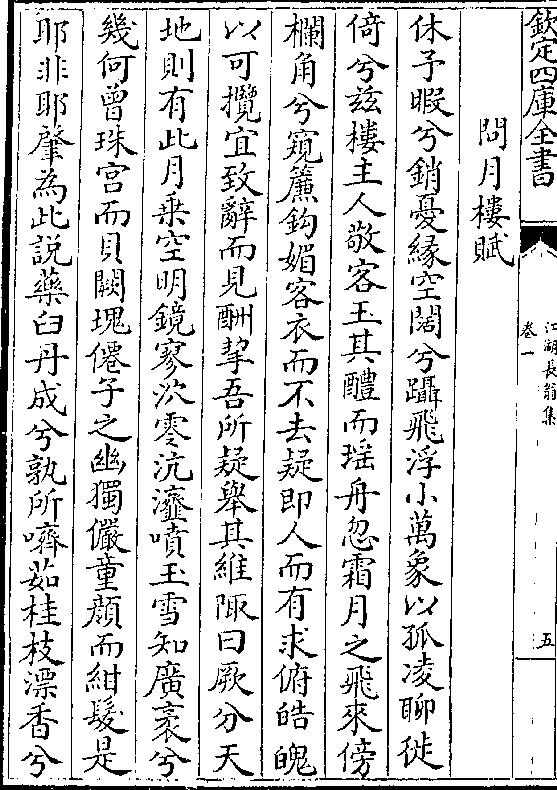 欽定四庫全書
江湖長翁集
卷一
五
問月樓賦
休予暇兮銷憂緣空闊兮躡飛浮小萬象以孤凌聊徙
倚兮兹樓主人敬客玉其醴而瑶舟忽霜月之飛來傍
欄角兮窺簾鈎媚客衣而不去疑即人而有求俯皓魄
以可攬宜致辭而見酬摯吾所疑舉其維陬曰厥分天
地則有此月乗空明鏡寥泬零沆瀣噴玉雪知廣袤兮
幾何曾珠宫而貝闕塊僊子之幽獨儼童顔而紺髮是
耶非耶肇為此説藥臼丹成兮孰所嚌茹桂枝漂香兮